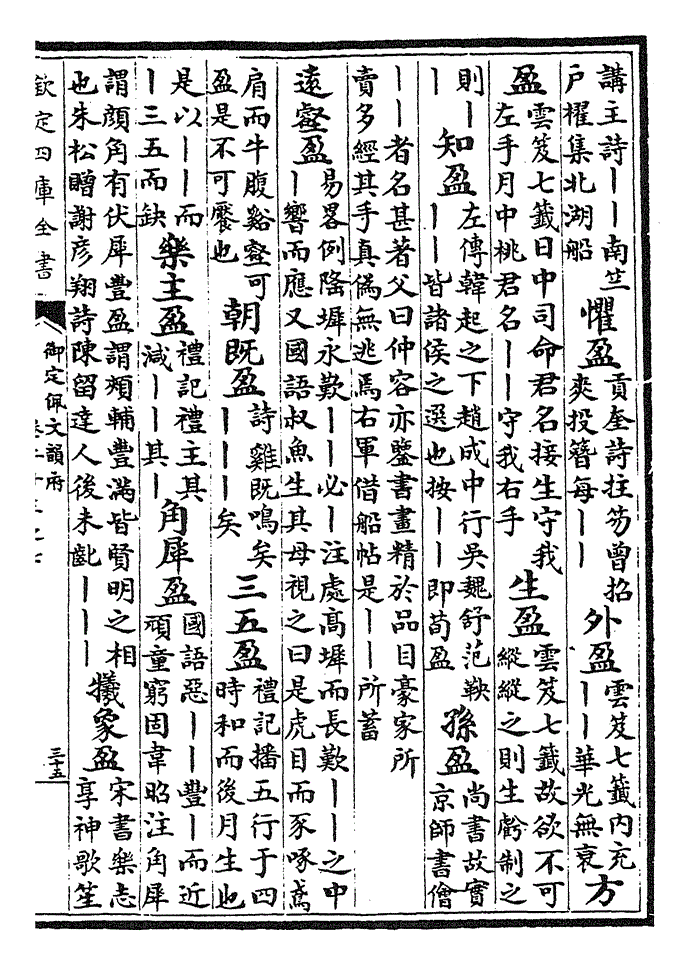 講主詩｜｜南竺戶櫂集北湖船 懼盈 貢奎詩拄笏曾招爽投簪每｜｜ 外盈 雲笈七籤內充｜｜華光無衰 方
盈 雲笈七籤日中司命君名接生守我左手月中桃君名｜｜守我右手 生盈 雲笈七籤故欲不可縱縱之則生虧制之
則｜｜ 知盈 左傳韓起之下趙成中行吳魏舒范鞅｜｜皆諸侯之選也按｜｜即荀盈 孫盈 尚書故實京師書儈
｜｜者名甚著父曰仲容亦鑒書畫精於品目豪家所賣多經其手真偽無逃焉右軍借船帖是｜｜所蓄
遠壑盈 易畧例隆墀永歎｜｜必｜注處髙墀而長歎｜｜之中｜響而應又國語叔魚生其母視之曰是虎目而豕啄鳶
肩而牛腹谿壑可盈是不可饜也 朝既盈 詩雞既鳴矣｜｜｜矣 三五盈 禮記播五行于四時和而後月生也
是以｜｜而｜三五而缺 樂主盈 禮記禮主其減｜｜其｜ 角犀盈 國語惡｜｜豐｜而近頑童窮固韋昭注角犀
謂顏角有伏犀豐盈謂頰輔豐滿皆賢明之相也朱松贈謝彥翔詩陳留達人後未齔｜｜｜ 犧象盈 宋書樂志享神歌笙
欽定四庫全書
御定佩文韻府
三十五